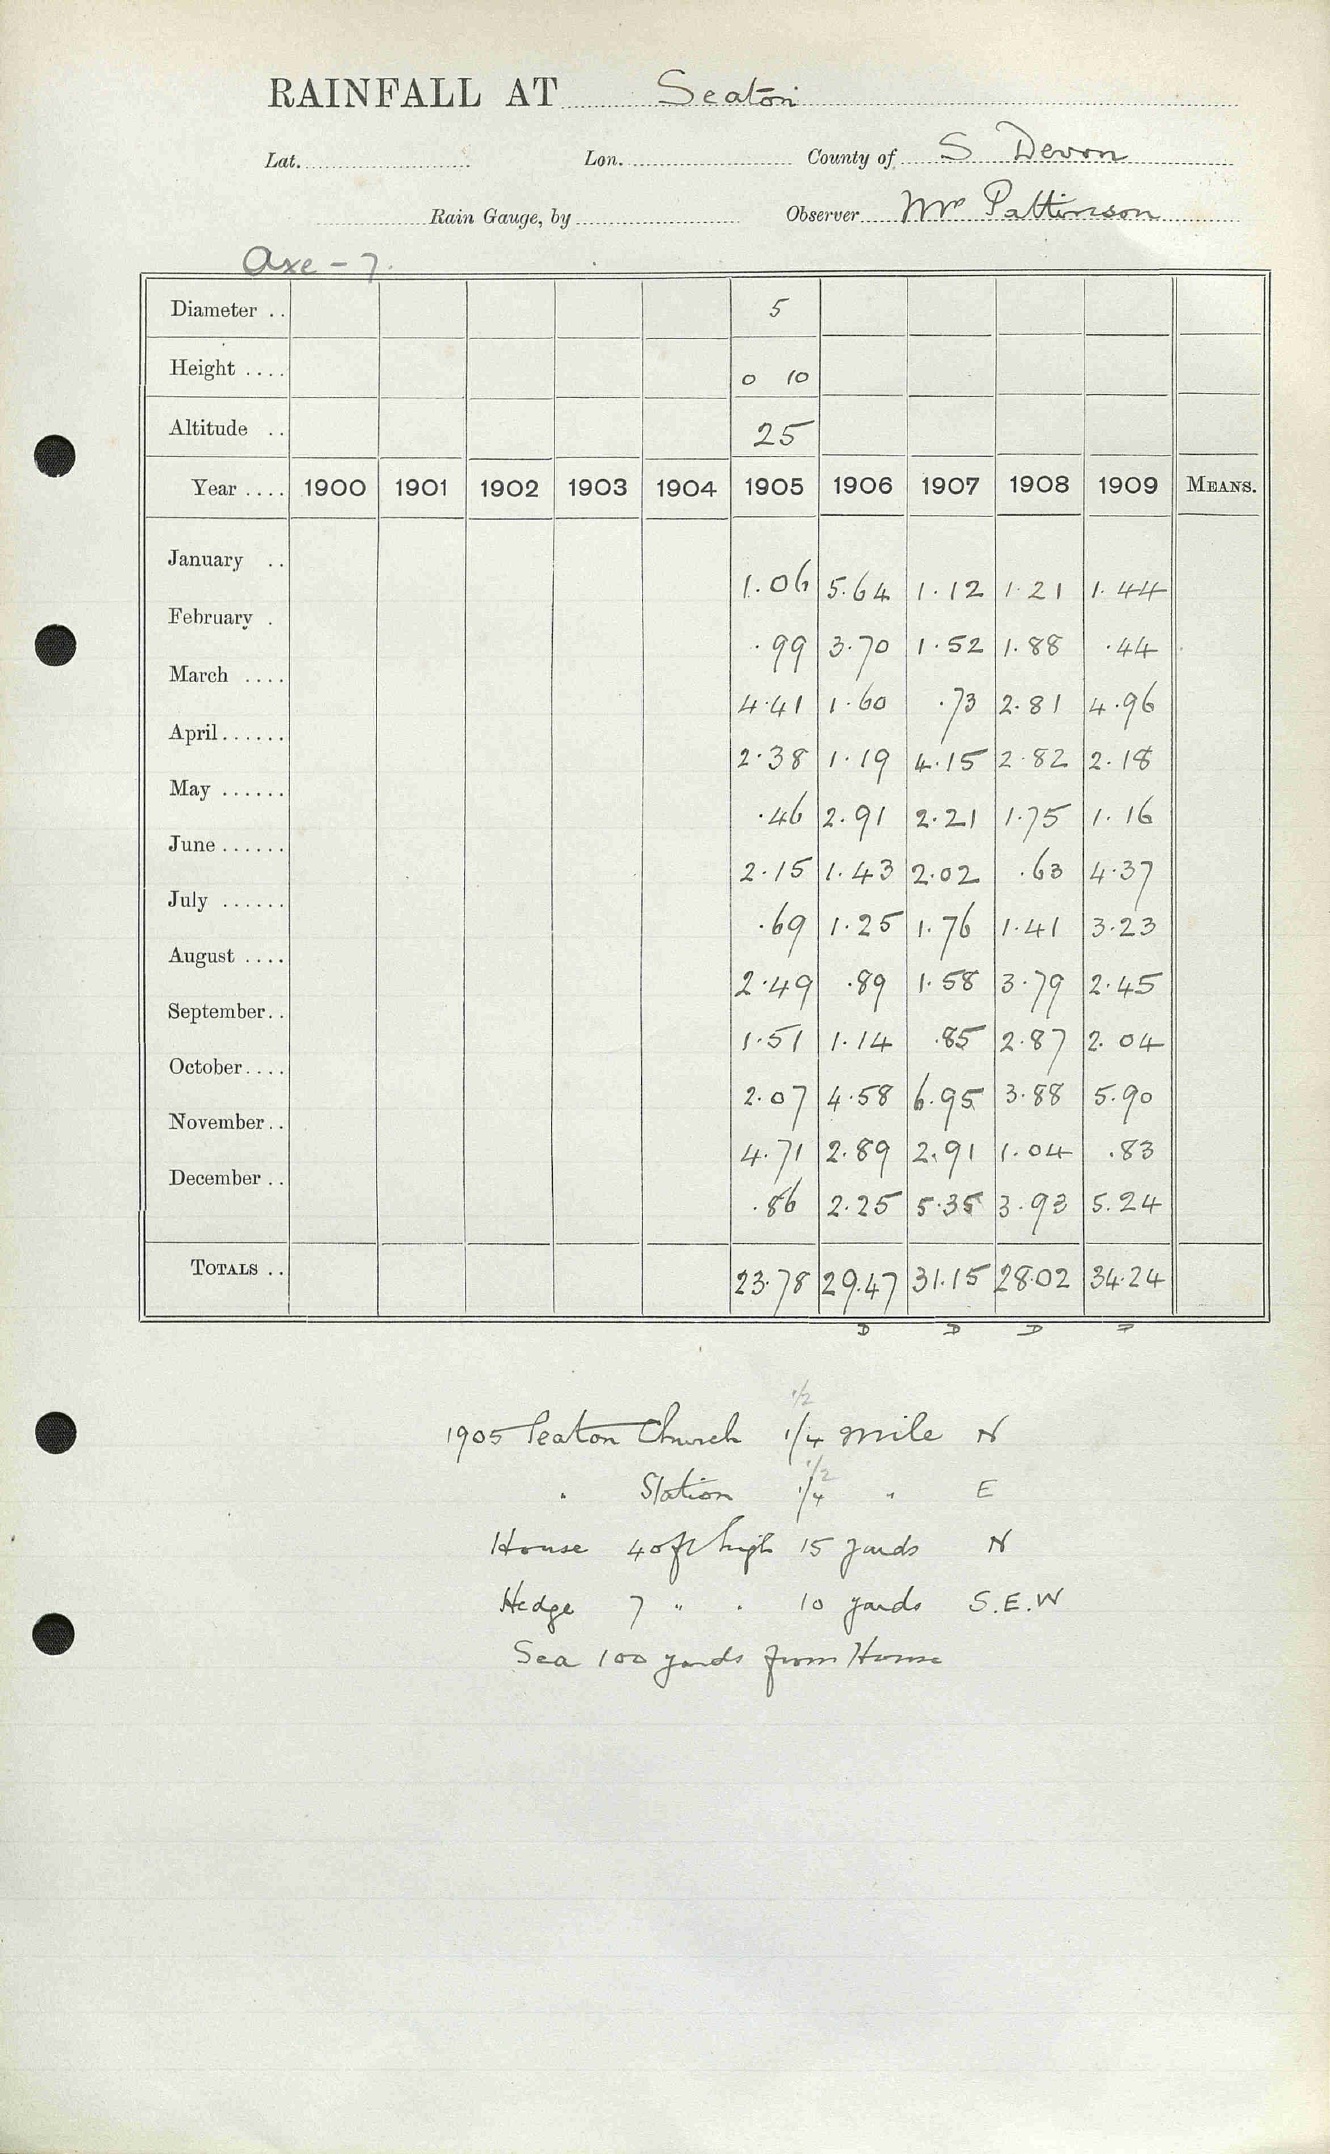 RAINFALL AT Seaton
Lat. Lon. County of S Devon
Rain Gauge, by Observer Mrs Pattinson
Axe - 7.
Diameter .. 5
Height .... 0 10
Altitude .. 25
Year .... 1900 1901 1902 1903 1904 1905 1906 1907 1908 1909 MEANS.
January .. 1.06 5.64 1.12 1.21 1.44
February . .99 3.70 1.52 1.88 .44
March .... 4.41 1.60 .73 2.81 4.96
April...... 2.38 1.19 4.15 2.82 2.18
May ...... .46 2.91 2.21 1.75 1.16
June ...... 2.15 1.43 2.02 .63 4.37
July ...... .69 1.25 1.76 1.41 3.23
August .... 2.49 .89 1.58 3.79 2.45
September.. 1.51 1.14 .85 2.87 2.04
October.... 2.07 4.58 6.95 3.88 5.90
November.. 4.71 2.89 2.91 1.04 .83
December .. .86 2.25 5.35 3.93 5.24
TOTALS .. 23.78 29.47 31.15 28.02 34.24
D D D
1/2
1905 Seaton Church 1/4 mile N
1/2
" Station 1/4 " E
House 40ft high 15 yards N
Hedge 7 " " 10 yards S.E.W
Sea 100 yards from House